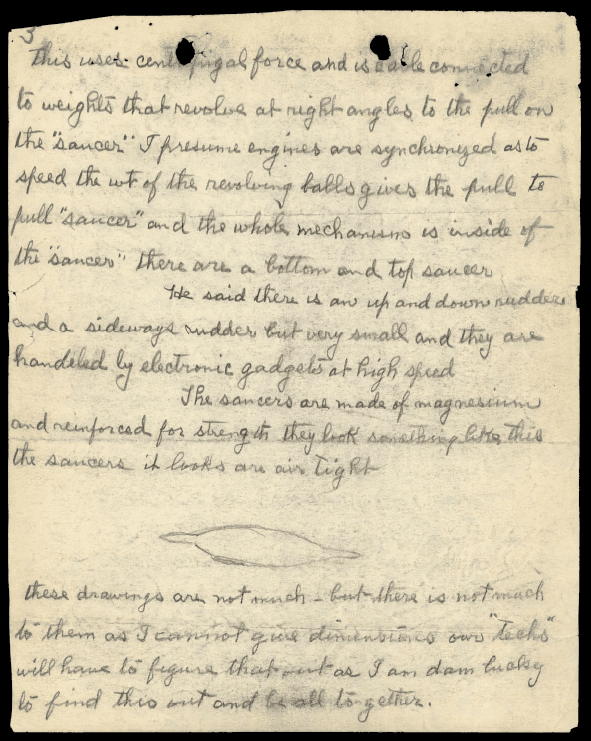 3
This uses centrifugal force and is cable connected
to weights that revolve at right angles to the pull on
the "saucer" I presume engines are synchronized as to
speed the wt of the revolving balls gives the pull to
pull "saucer" and the whole mechanism is inside of
the "saucer" there are a bottom and top saucer
He said there is an up and down rudder
and a sideways rudder but very small and they are
handeled by electronic gadgets at high speed
The saucers are made of magnesium
and reinforced for strength they look something like this
the saucers it looks are air tight
these drawings are not much - but there is not much
to them as I cannot give dimensions our "techs"
will have to figure that out as I am dam lucky
to find this out and be all together.